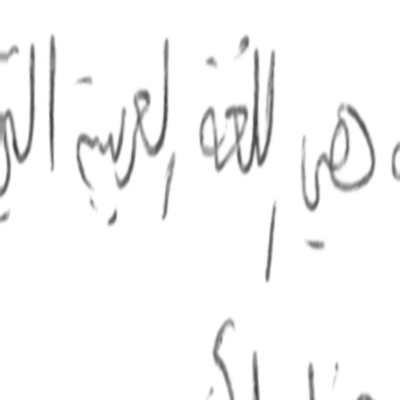 هي اللغة العربية التي